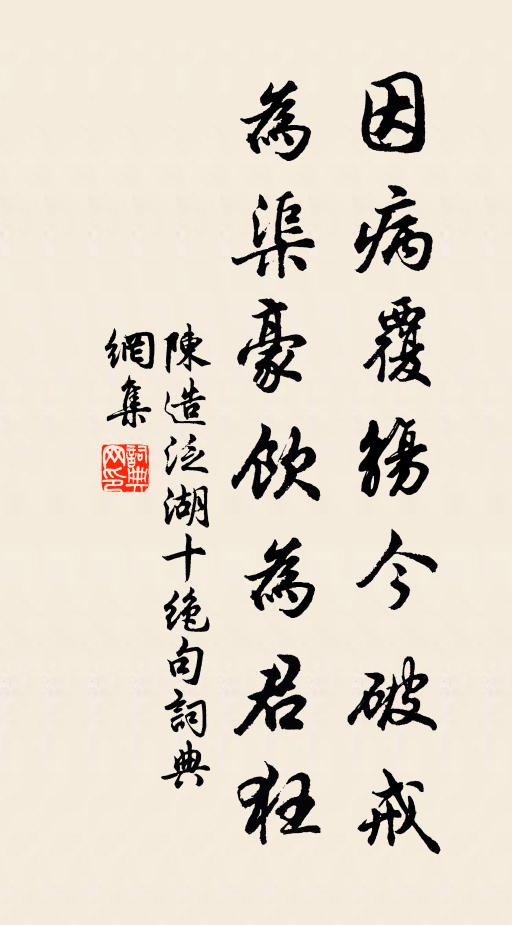 因病覆觴今破戒
為渠豪飲為君狂
陳造泛湖十絶句詞典
網集
詞典
网印